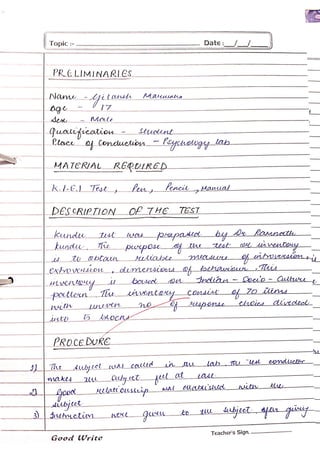 Topic :-
Date : __/__/__
PRELIMINARIES
Name - Gitansh
Age - 17
Sex - Male
Qualification - Student
Place of Conduction - Psychology lab
MATERIAL REQUIRED
K.I.E.I Test, Pen, Pencil, Manual
DESCRIPTION OF THE TEST
Kundu test was prepared by Dr Ramnath
Kundu. The purpose of the test or inventory
is to obtain reliable measure of introversion,
extroversion, dimensions of behaviour. This
inventory is based on Indian - Socio - Culture
pattern. The inventory consist of 70 items
with uneven no of response choice divided
into 5 blocks
PROCEDURE
1) The subject was called in the lab the test conductor
makes the subject feel at ease
2) good relationship was established with the
subject
3) Instruction were given to the subject after giving
Teacher's Sign
Good Write